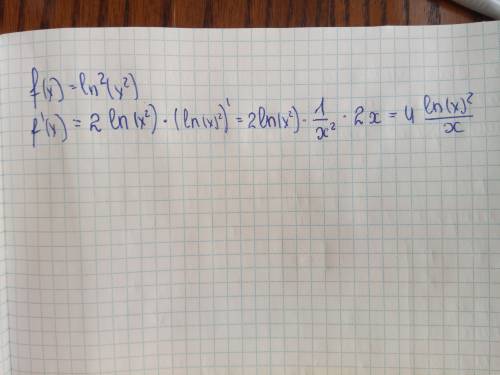 f(x) = ln²(x²)
f'(x) = 2 ln(x²) · (ln(x)²)' = 2ln(x²) · 1/x² · 2x = 4 ln(x)²/x